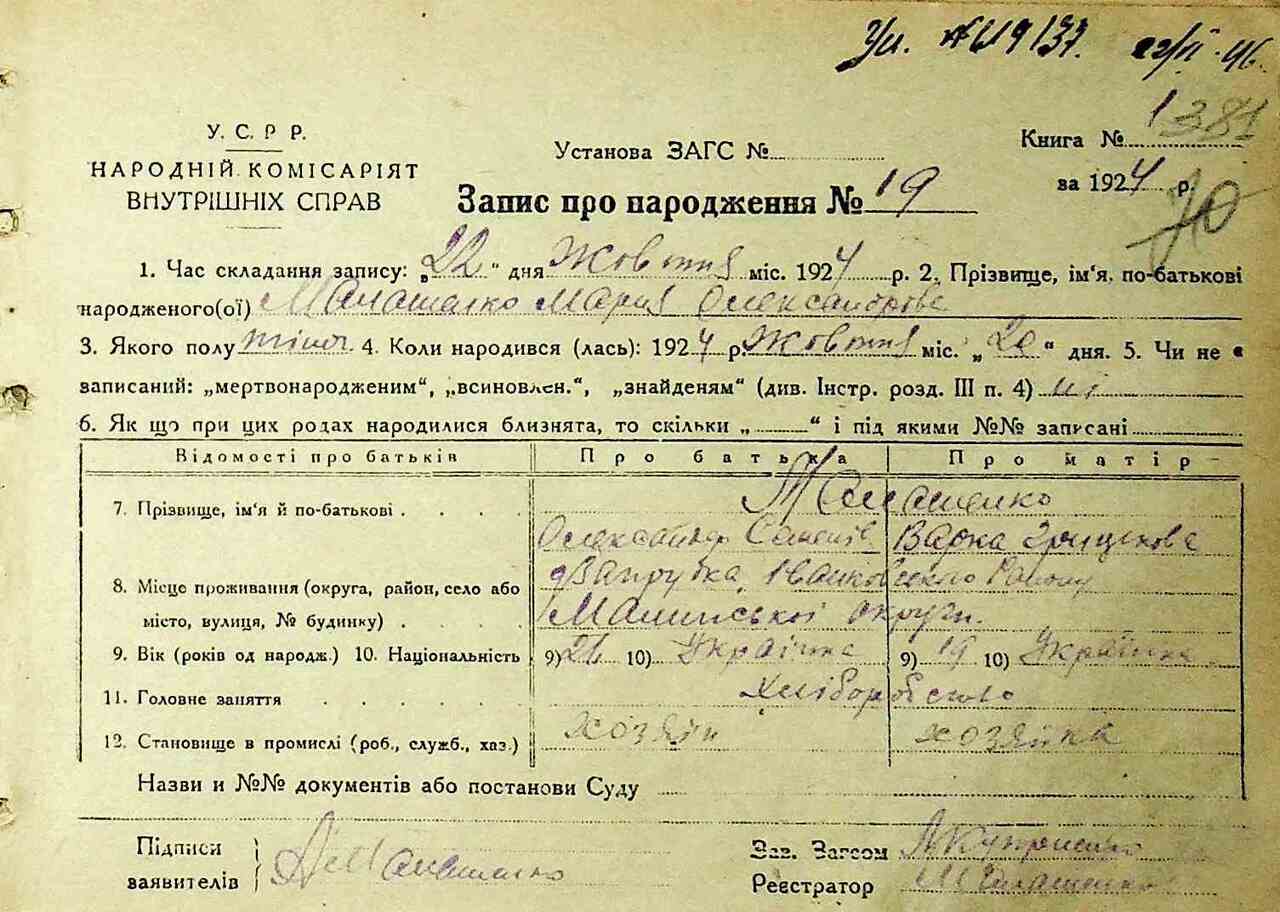 Ул. № 119137. 22/II-46.
1381
У. С. Р Р.
НАРОДНІЙ КОМІСАРІЯТ
ВНУТРІШНІХ СПРАВ
Установа ЗАГС №
Книга №
за 1924 р.
70
Запис про народження № 19
1. Час складання запису: „22" дня Жовтня міс. 1924 р. 2. Прізвище, ім'я, по-батькові
народженого(ої) Малашенко Мария Олександрова
3. Якого полу жіноч 4. Коли народився (лась): 1924 р. Жовтня міс. „20" дня. 5. Чи не є
записаний: „мертвонародженим", „всиновлен.", „знайденям" (див. Інстр. розд. III п. 4) ні
6. Як що при цих родах народилися близнята, то скільки „ " і під якими №№ записані
Відомості про батьків Про батька Про матір
7. Прізвище, ім'я й по-батькові Малашенко
Олександр Семенів Варка Грицькова
8. Місце проживання (округа, район, село або Запрудка Іванковского Району
місто, вулиця, № будинку) Малинської округи.
9. Вік (років од народж.) 10. Національність 9) 21 10) Українка 9) 19 10) Українка
11. Головне заняття Хліборобство
12. Становище в промислі (роб., служб., хаз.) хозяін хозяйка
Назви и №№ документів або постанови Суду
Підписи
заявителів Малашенко
Зав. Загсом
Реєстратор Малашенко